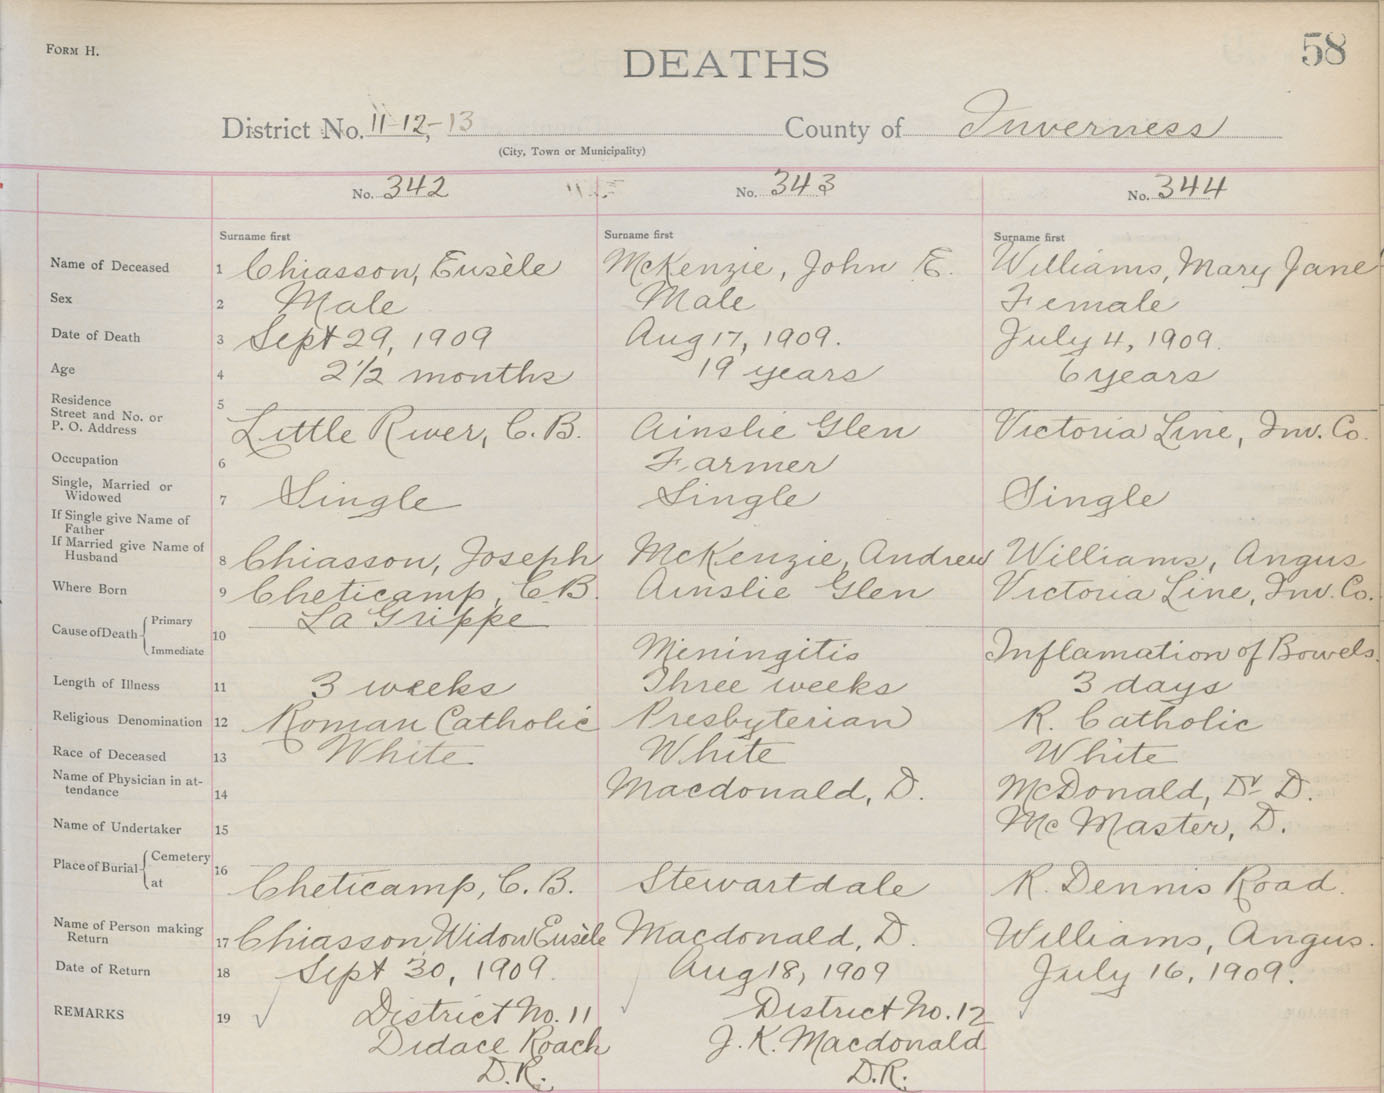 FORM H.
DEATHS
58
District No. 11-12,-13 County of Inverness
(City, Town or Municipality)
No. 342 No. 343 No. 344
Surname first Surname first Surname first
Name of Deceased 1 Chiasson, Eusèle McKenzie, John E. Williams, Mary Jane
Sex 2 Male Male Female
Date of Death 3 Sept 29, 1909 Aug 17, 1909. July 4, 1909.
Age 4 2 1/2 months 19 years 6 years
Residence 5
Street and No. or
P. O. Address Little River, C. B. Ainslie Glen Victoria Line, Inv. Co.
Occupation 6 Farmer
Single, Married or
Widowed 7 Single Single Single
If Single give Name of
Father
If Married give Name of
Husband 8 Chiasson, Joseph McKenzie, Andrew Williams, Angus
Where Born 9 Cheticamp, C.B. Ainslie Glen Victoria Line, Inv. Co.
Cause of Death Primary La Grippe
Immediate 10 Meningitis Inflamation of Bowels.
Length of Illness 11 3 weeks Three weeks 3 days
Religious Denomination 12 Roman Catholic Presbyterian R. Catholic
Race of Deceased 13 White White White
Name of Physician in at-
tendance 14 Macdonald, D. McDonald, Dr D.
Name of Undertaker 15 McMaster, D.
Place of Burial Cemetery 16
at Cheticamp, C. B. Stewartdale R. Dennis Road.
Name of Person making
Return 17 Chiasson Widow Eusèle Macdonald, D. Williams, Angus.
Date of Return 18 Sept 30, 1909. Aug 18, 1909 July 16, 1909.
REMARKS 19 District No. 11 District No. 12
Didace Roach J. K. Macdonald
D.R. D.R.